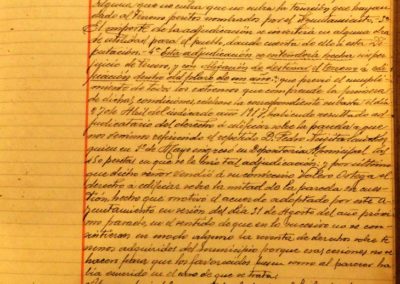 alguna, que no entra que no entra
dado al terreno peritos nombrados por el Ayuntamiento. 3º
El importe de la adjudicacion se invertiria en alguna obra
de utilidad para el pueblo, dando cuenta de ello a esta Di-
putación. 4º Esta adjudicación se entenderia hecha sin per-
juicio de tercero, y con obligación de destinar el terreno a edi-
ficación dentro del plazo de un año."; que previo el cumpli-
miento de todos los extremos que comprende la primera
de dichas condiciones, celebrose la correspondiente subasta el dia
7 de Abril del citado año 1917, habiendo resultado ad-
judicatario del derecho a edificar sobre la parcela a que
nos venimos refiriendo el repetido D. Pedro
quien en 2 de Mayo ingresó en Depositaria Municipal las
150 pesetas en que se le hizo tal adjudicación; y por último
que dicho señor vendió a su convecino Isidro Ortega el
derecho a edificar sobre la mitad de la parcela en cues-
tión, hecho que motivó el acuerdo adoptado por este A-
yuntamiento en sesión del dia 31 de Agosto del año próxi-
mo pasado, en el sentido de que en lo sucesivo no se con-
sintieran en modo alguno la venta de derechos sobre te-
rrenos adquiridos del municipio porque esas cesiones no se
hacen para que los favorecidos como al parecer ha-
bia ocurrido en el caso de que se trata.